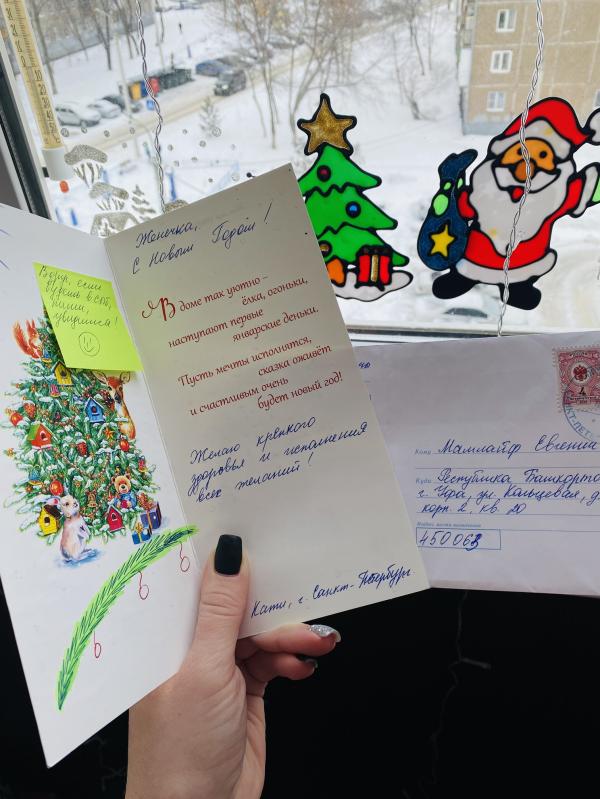 Женечка,
С Новым Годом!
В доме так уютно –
ёлка, огоньки,
наступают первые
январские деньки.
Пусть мечты исполнятся,
сказка оживёт
и счастливым очень
будет новый год!
Желаю крепкого
здоровья и исполнения
всех желаний!
Катя, г. Санкт-Петербург.
будешь в СПб,
пиши,
увидимся!
4
Кому Мамлайф Евгении
Куда Республика Башкорто
г. Уфа, ул. Кольцевая, д.
корп. 2, кв. 20
450063